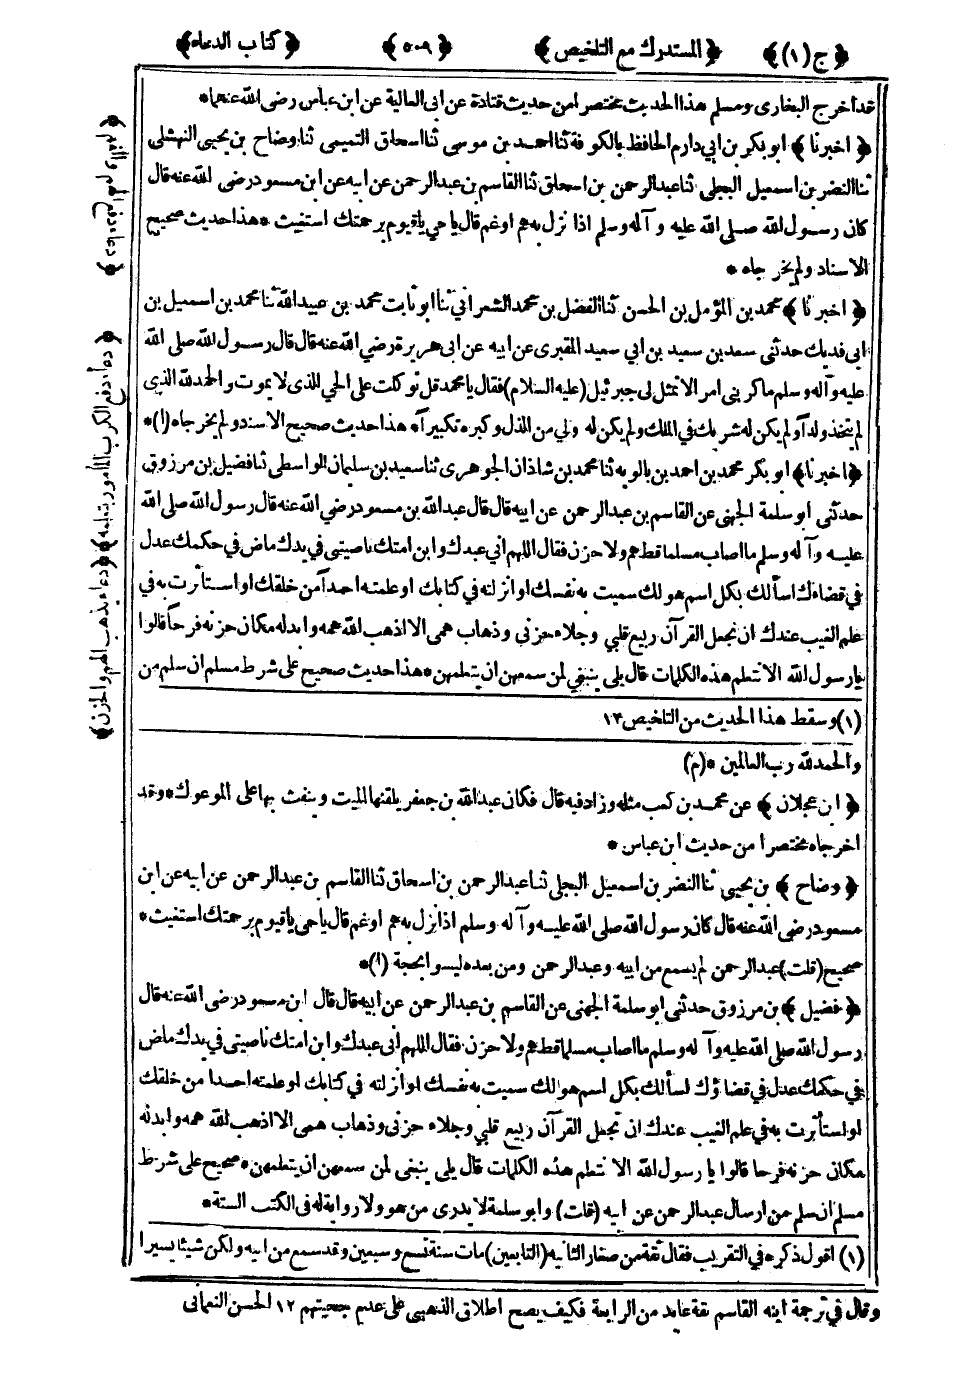 ﴿ ج (١) ﴾ ﴿ المستدرك مع التلخيص ﴾ ﴿ ٥٠٩ ﴾ ﴿ كتاب الدعاء ﴾
قد اخرج البخارى ومسلم هذا الحديث مختصرا من حديث قتادة عن ابى العالية عن ابن عباس رضى الله عنهما *
﴿ اخبرنا ﴾ ابو بكر بن ابي دارم الحافظ بالكوفة ثنا احمد بن موسى ثنا اسحاق التميمى ثنا وضاح بن يحيى النهشلى
ثنا النضر بن اسمعيل البجلى ثنا عبد الرحمن بن اسحاق ثنا القاسم بن عبد الرحمن عن ابيه عن ابن مسعود رضى الله عنه قال
كان رسول الله صلى الله عليه وآله وسلم اذا نزل به هم او غم قال يا حي يا قيوم برحمتك استغيث * هذا حديث صحيح
الاسناد ولم يخرجاه *
﴿ اخبرنا ﴾ محمد بن المؤمل بن الحسن ثنا الفضل بن محمد الشعراني ثنا ابو ثابت محمد بن عبيد الله ثنا محمد بن اسمعيل بن
ابى فديك حدثنى سعد بن سعيد بن ابي سعيد المقبرى عن ابيه عن ابى هريرة رضي الله عنه قال قال رسول الله صلى الله
عليه وآله وسلم ما كربنى امر الا تمثل لى جبرئيل (عليه السلام) فقال يا محمد قل توكلت على الحي الذى لا يموت والحمد لله الذى
لم يتخذ ولدا ولم يكن له شريك في الملك ولم يكن له ولي من الذل وكبره تكبيراً * هذا حديث صحيح الاسناد ولم يخرجاه (١) *
﴿ اخبرنا ﴾ ابو بكر محمد بن احمد بن بالويه ثنا محمد بن شاذان الجوهرى ثنا سعيد بن سليمان الواسطى ثنا فضيل بن مرزوق
حدثنى ابو سلمة الجهنى عن القاسم بن عبد الرحمن عن ابيه قال قال عبد الله بن مسعود رضي الله عنه قال رسول الله صلى الله
عليه وآله وسلم ما اصاب مسلما قط هم ولا حزن فقال اللهم انى عبدك وابن امتك ناصيتى في يدك ماض في حكمك عدل
في قضاءك اسألك بكل اسم هو لك سميت به نفسك او انزلته في كتابك او علمته احداً من خلقك او استأثرت به في
علم الغيب عندك ان تجعل القرآن ربيع قلبي وجلاء حزني وذهاب همى الا اذهب الله همه وابدله مكان حزنه فرحا قالوا
يا رسول الله الا نتعلم هذه الكلمات قال بلى ينبغي لمن سمعهن ان يتعلمهن * هذا حديث صحيح على شرط مسلم ان سلم من
(١) وسقط هذا الحديث من التلخيص ١٢
والحمد لله رب العالمين * (م)
﴿ ابن عجلان ﴾ عن محمد بن كعب مثله وزاد فيه قال فكان عبد الله بن جعفر يلقنها الميت وينفث بها على الموعوك * وقد
اخرجاه مختصرا من حديث ابن عباس *
﴿ وضاح ﴾ بن يحيى ثنا النضر بن اسمعيل البجلى ثنا عبد الرحمن بن اسحاق ثنا القاسم بن عبد الرحمن عن ابيه عن ابن
مسعود رضى الله عنه قال كان رسول الله صلى الله عليه وآله وسلم اذا نزل به هم او غم قال يا حى يا قيوم برحمتك استغيث *
صحيح (قلت) عبد الرحمن لم يسمع من ابيه وعبد الرحمن ومن بعده ليسوا بحجة (١) *
﴿ فضيل ﴾ بن مرزوق حدثنى ابو سلمة الجهنى عن القاسم بن عبد الرحمن عن ابيه قال قال ابن مسعود رضى الله عنه قال
رسول الله صلى الله عليه وآله وسلم ما اصاب مسلما قط هم ولا حزن فقال اللهم انى عبدك وابن امتك ناصيتى في يدك ماض
في حكمك عدل في قضاؤك اسألك بكل اسم هو لك سميت به نفسك او انزلته في كتابك او علمته احدا من خلقك
او استأثرت به في علم الغيب عندك ان تجعل القرآن ربيع قلبي وجلاء حزنى وذهاب همى الا اذهب الله همه وابدله
مكان حزنه فرحا قالوا يا رسول الله الا نتعلم هذه الكلمات قال بلى ينبغى لمن سمعهن ان يتعلمهن * صحيح على شرط
مسلم ان سلم من ارسال عبد الرحمن عن ابيه (قلت) وابو سلمة لا يدرى من هو ولا رواية له فى الكتب الستة *
(١) اقول ذكره في التقريب فقال ثقة من صغار الثانيه (التابعين) مات سنة تسع وسبعين وقد سمع من ابيه ولكن شيئا يسيرا
وقال في ترجمة ابنه القاسم ثقة عابد من الرابعة فكيف يصح اطلاق الذهبى على عدم حجيتهم ١٢ الحسن النعمانى
﴿ دعاء دفع الكرب
﴿ دعاء يذهب الهم والحزن ﴾